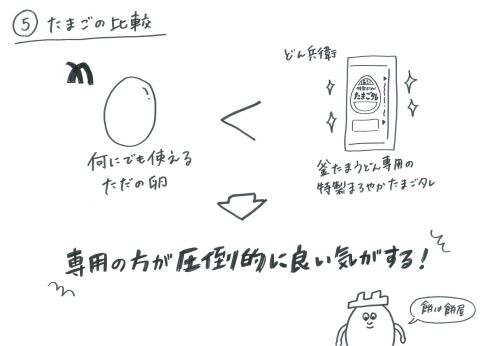 ⑤ たまごの比較
どん兵衛
特製まろやか
たまごダレ
何にでも使える
ただの卵
<
釜たまうどん専用の
特製まろやかたまごダレ
専用の方が圧倒的に良い気がする!
餅は餅屋